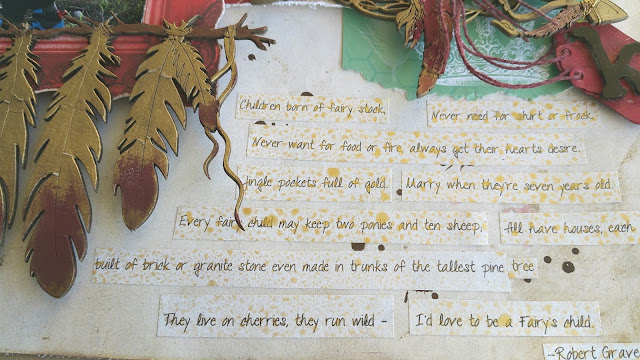 Children born of fairy stock, Never need for shirt or frock,
Never want for food or fire, always get their hearts desire.
Jingle pockets full of gold. Marry when they're seven years old.
Every fairy child may keep two ponies and ten sheep, All have houses, each
built of brick or granite stone even made in trunks of the tallest pine tree
They live on cherries, they run wild - I'd love to be a Fairy's child.
--Robert Grave